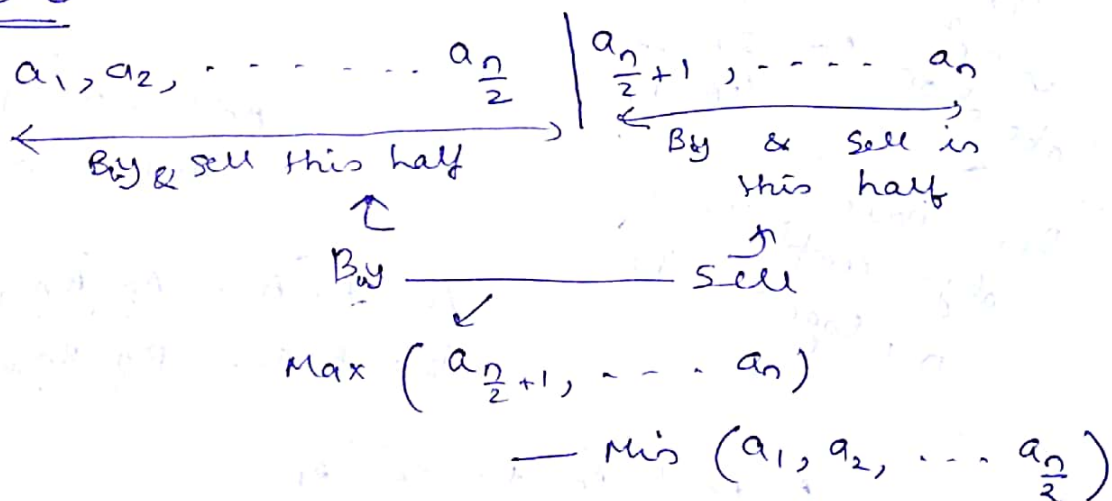 a₁, a₂, - - - - - - - a_{n/2} | a_{n/2 +1}, - - - - a_n
Buy & Sell this half
Buy & Sell in
this half
Buy ———— Sell
Max ( a_{n/2 +1}, - - - - a_n )
— Min ( a₁, a₂, - - - a_{n/2} )